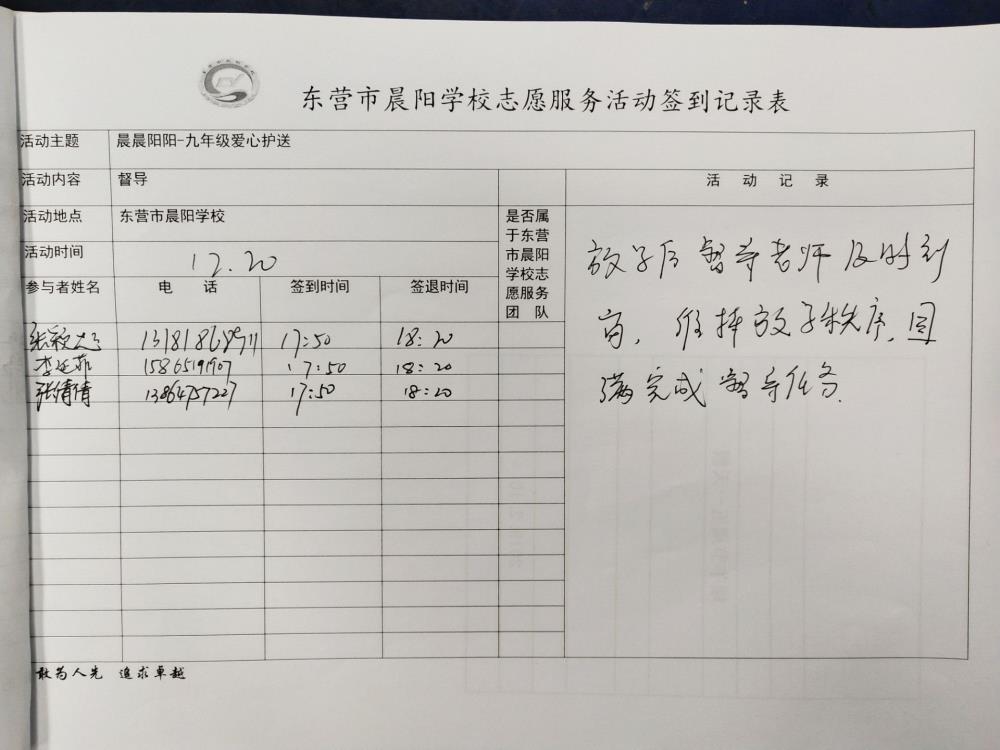 东营市晨阳学校志愿服务活动签到记录表
活动主题 晨晨阳阳-九年级爱心护送
活动内容 督导
活动地点 东营市晨阳学校
活动时间 12.20
是否属
于东营
市晨阳
学校志
愿服务
团 队
活 动 记 录
参与者姓名 电 话 签到时间 签退时间
17:50 18:20
李廷菲 15865191907 17:50 18:20
张倩倩 13864757227 17:50 18:20
放学后督导老师及时到
岗,维持放学秩序,圆
满完成督导任务.
敢为人先 追求卓越